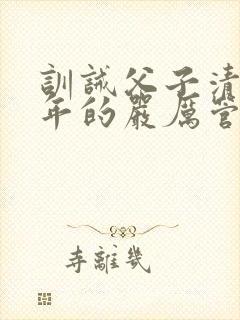 訓誡父子清
年的嚴厲管
寺離幾